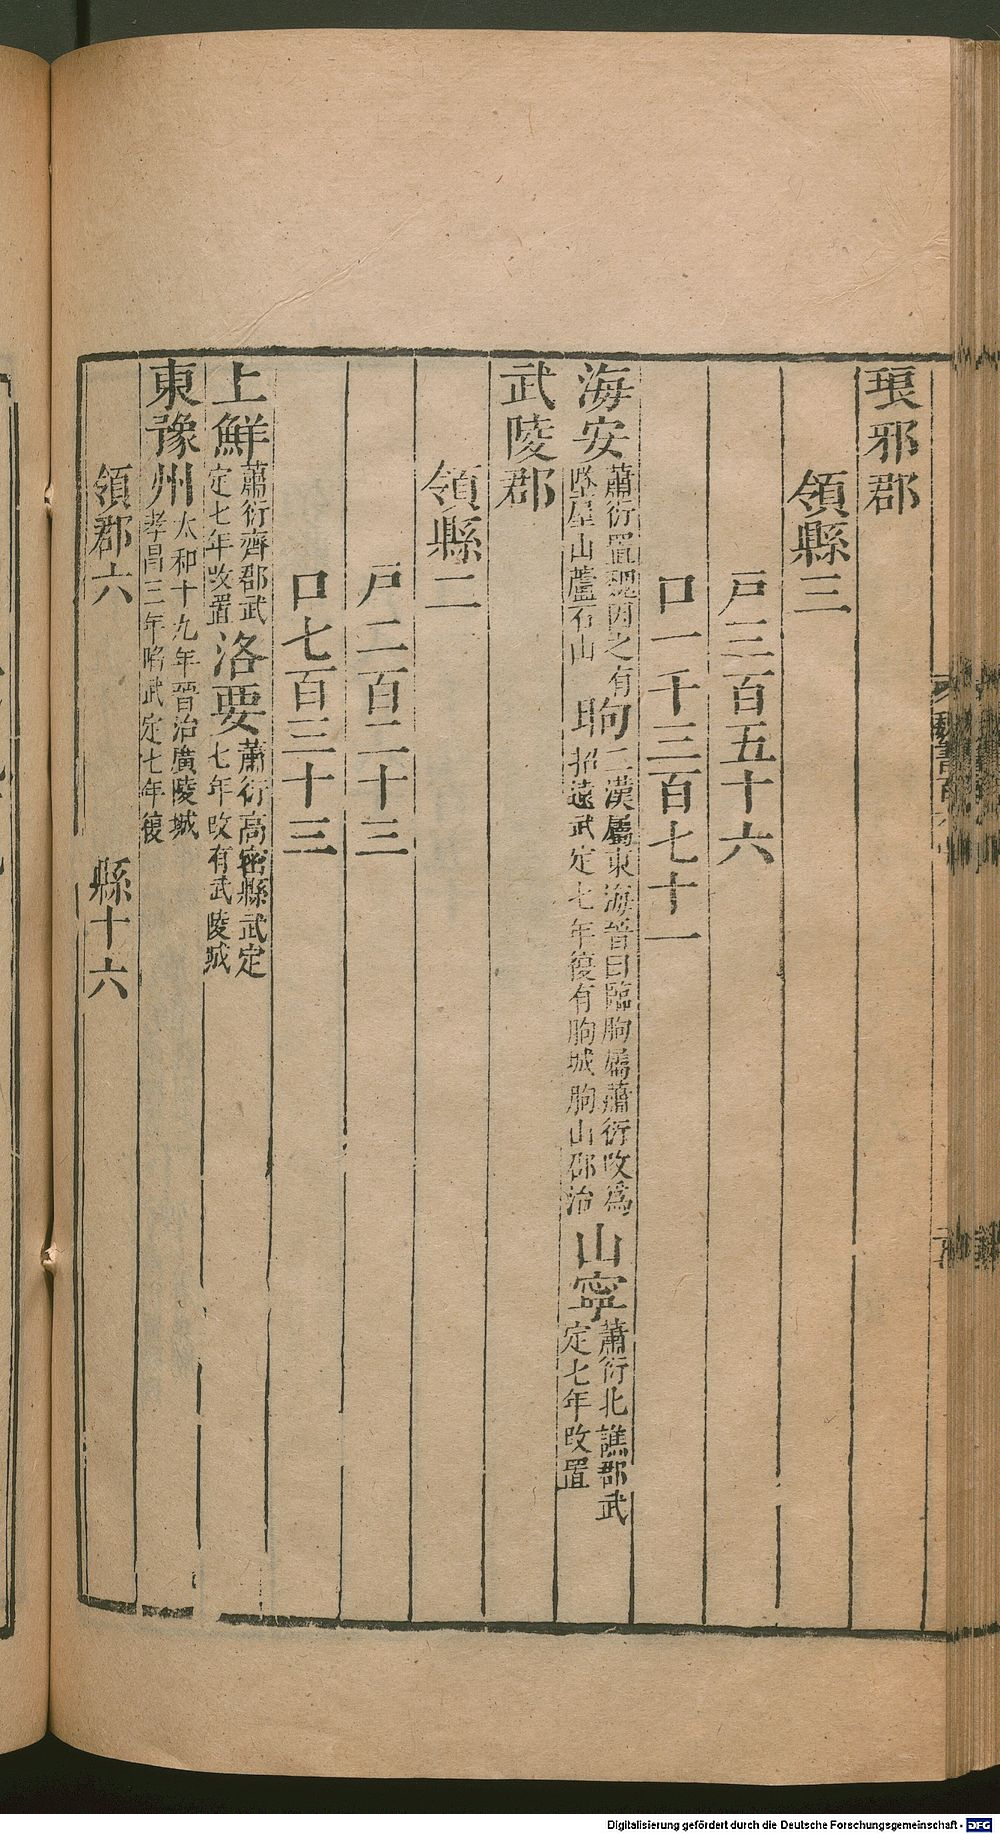 琅邪郡
領縣三
戸三百五十六
口一千三百七十一
海安蕭衍置魏因之有墜星山蘆石山朐二漢屬東海晉曰臨朐屬蕭衍改爲招遠武定七年復有朐城朐山郡治山寧蕭衍北譙郡武定七年改置
武陵郡
領縣二
戸二百二十三
口七百三十三
上鮮蕭衍齊郡武定七年改置洛要蕭衍高密縣武定七年改有武陵城
東豫州太和十九年晉治廣陵城孝昌三年陷武定七年復
領郡六 縣十六
Digitalisierung gefördert durch die Deutsche Forschungsgemeinschaft - DFG